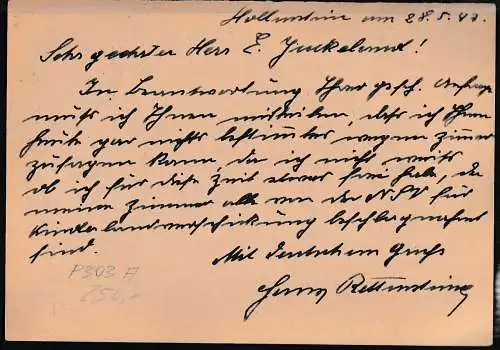 Hollenstein am 28.5.43.
Sehr geehrter Herr E. !
In Beantwortung Ihrer gesch. Anfrage
muß ich Ihnen mitteilen, daß ich Ihnen
heute gar nichts bestimmtes wegen Zimmer
zusagen kann, da ich nicht weiß
ob ich für diese Zeit etwas frei habe, da
meine Zimmer alle von der NSV für
Kinderlandverschickung beschlagnahmt
sind.
Mit deutschem Gruß
P303 A
250,-